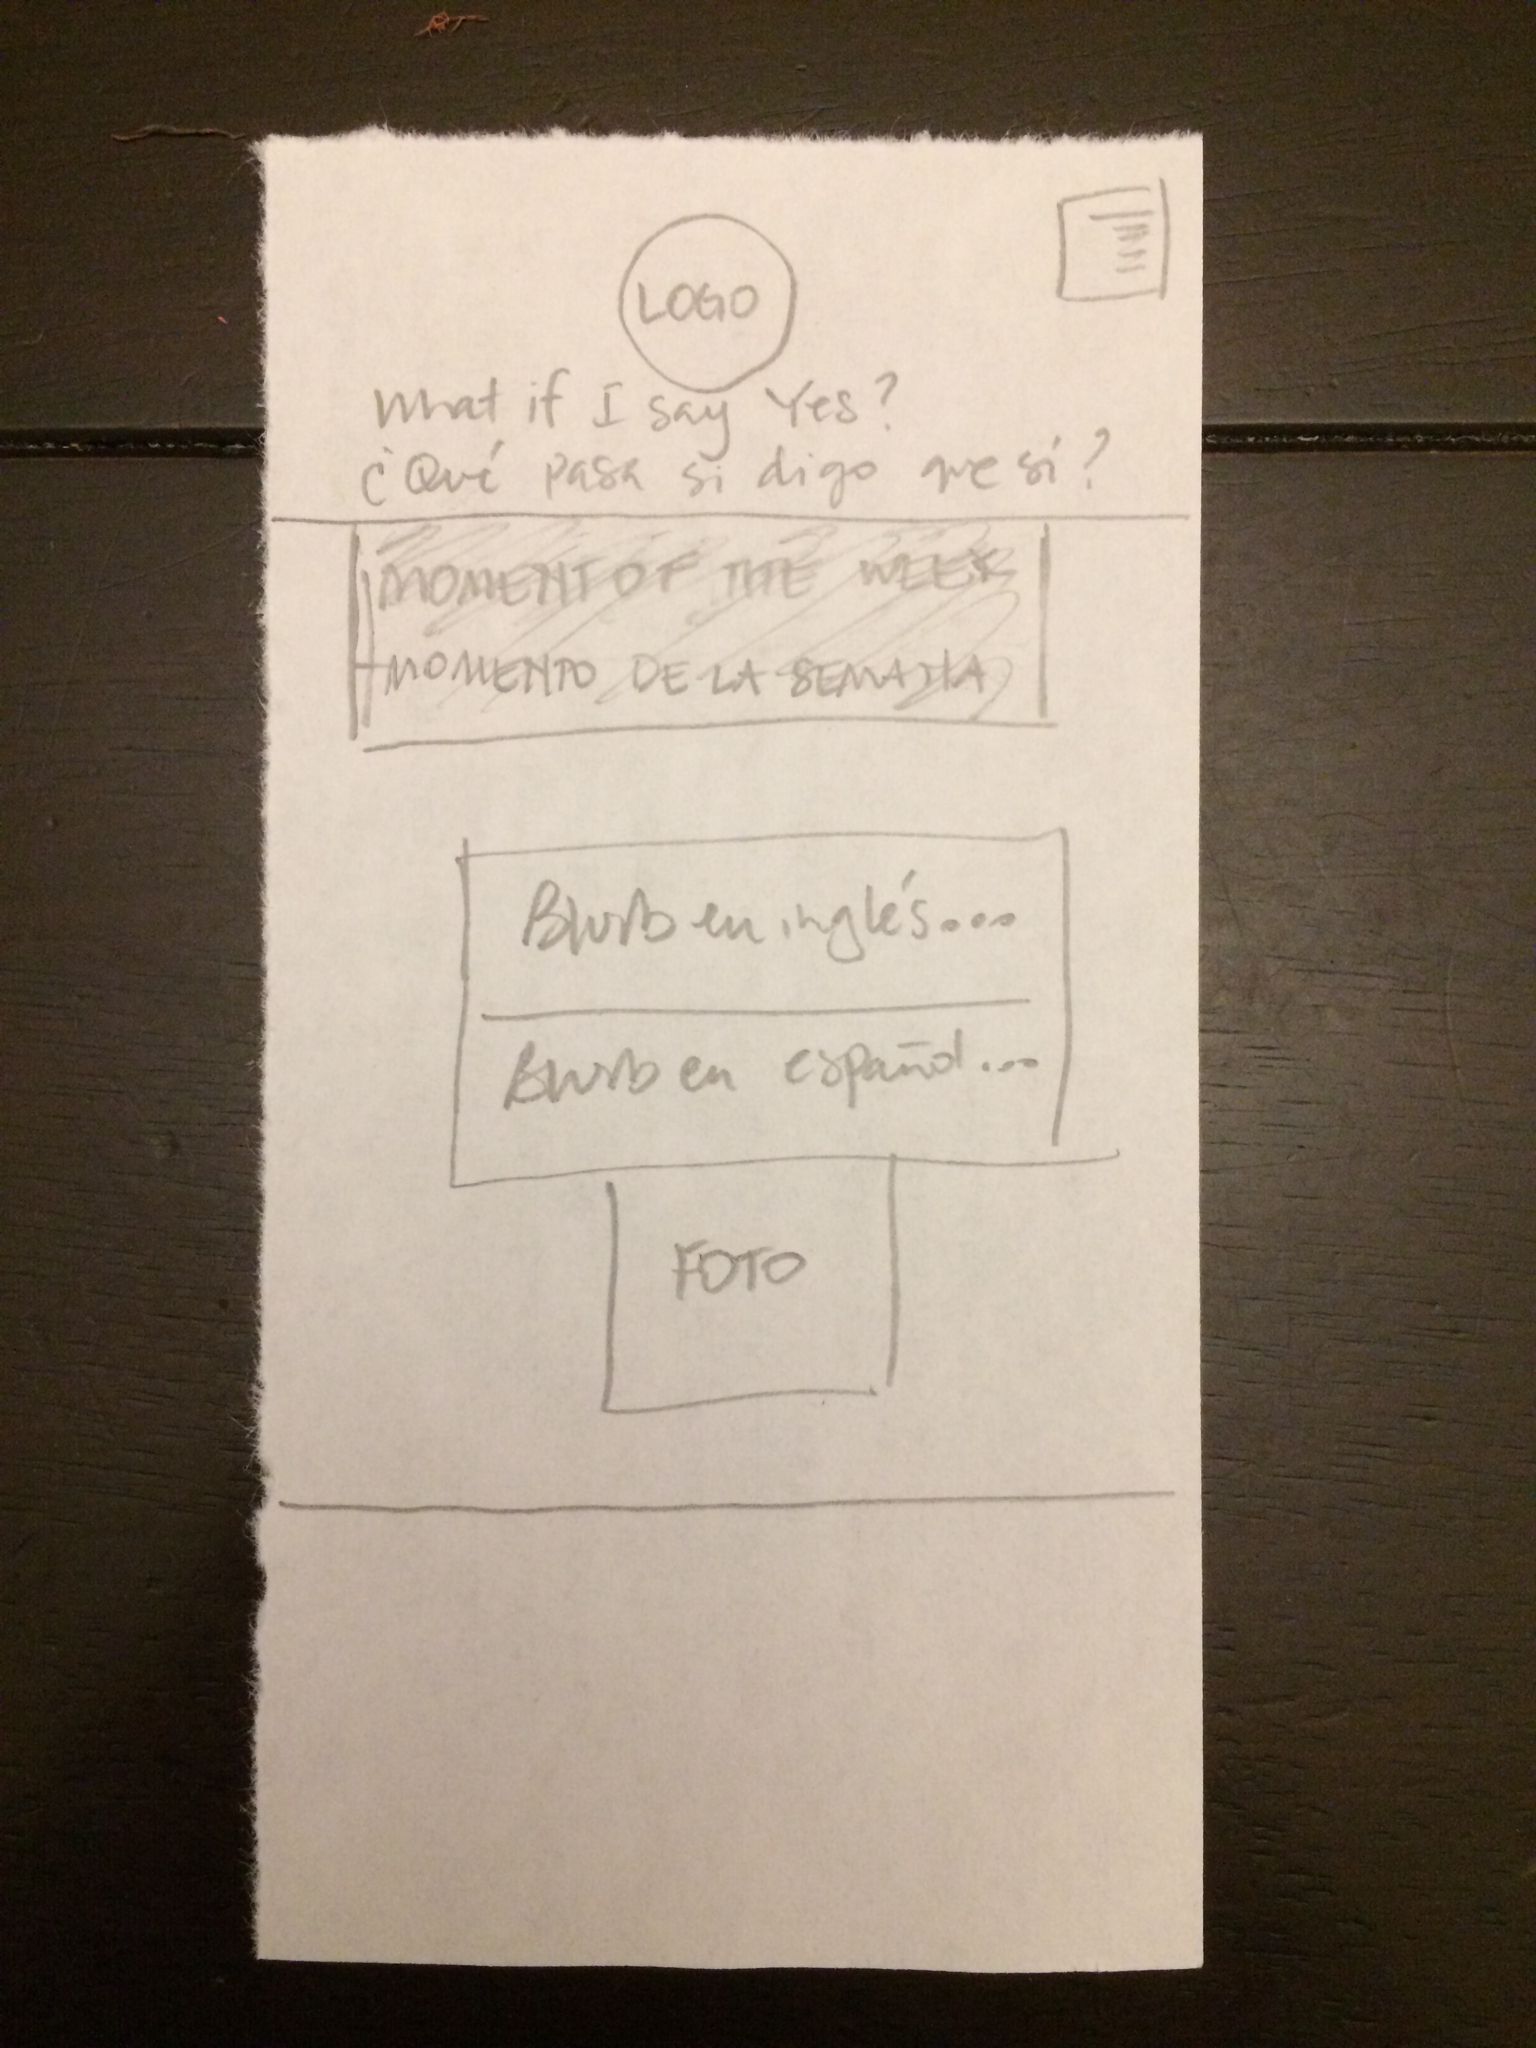 LOGO
What if I say Yes?
¿Qué pasa si digo que sí?
MOMENT OF THE WEEK
MOMENTO DE LA SEMANA
Blurb en inglés....
Blurb en español...
FOTO